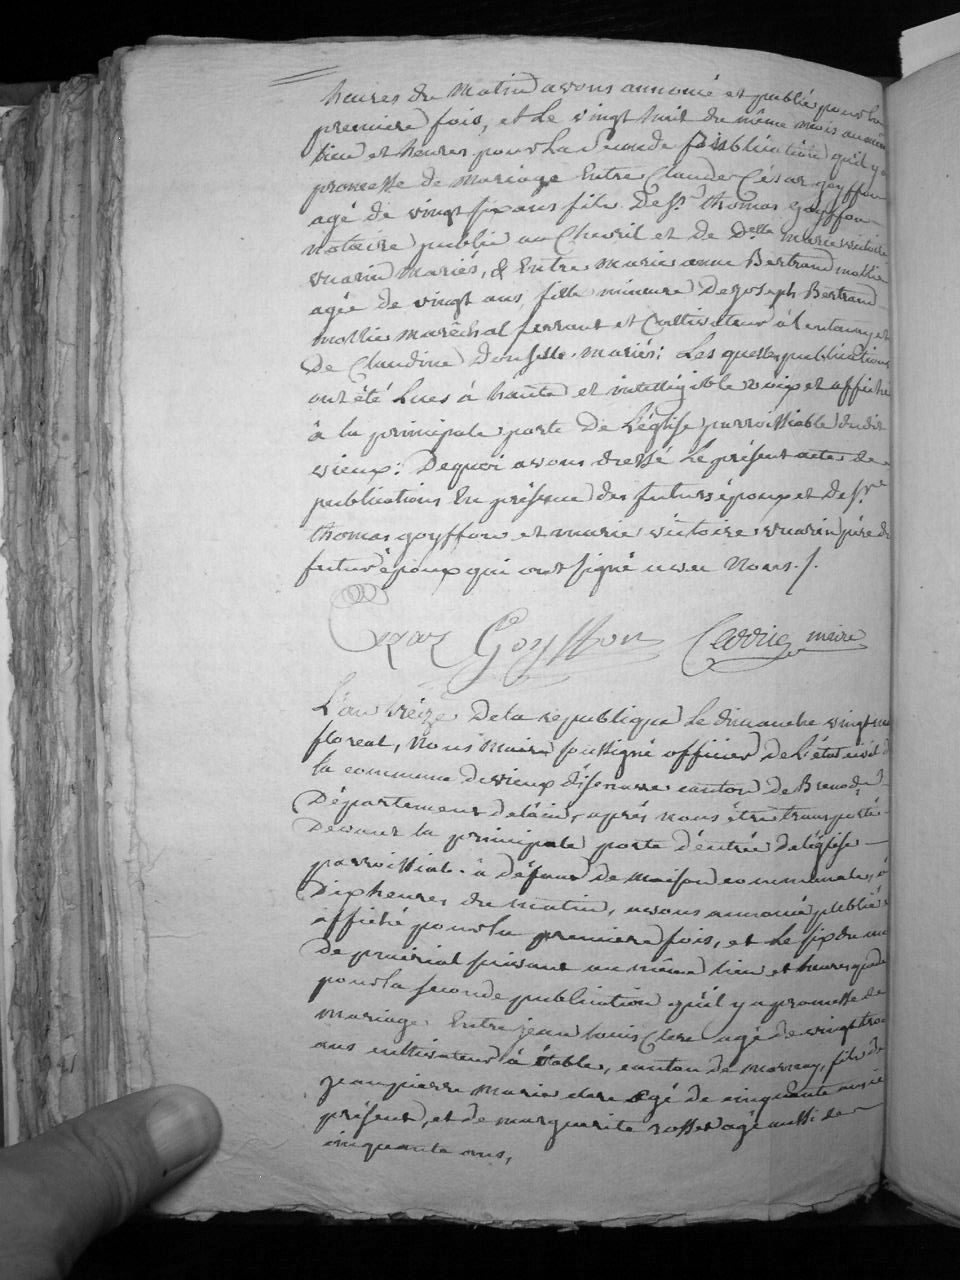 heures du matin avons annoncé et publié pour la
premiere fois, et le vingt huit du même mois au même
lieu et heures pour la seconde publication qu'il y a
promesse de mariage Entre Claude César goyffon
agé de vingt six ans fils de Sr. thomas goyffon
notaire public au Chevril et de Delle marie victoire
vuarin mariés, & Entre marie anne Bertrand mollie
agée de vingt ans, fille mineure de joseph Bertrand
mollie maréchal ferrant et cultivateur à lentenay et
De Claudine mariés: Les quelles publications
ont été Lues à haute et intelligible voix et affiché
à la principale porte De L'église parroissiable dudit
vieux: De quoi avons dressé Le présent acte de
publications En présence des futurs époux et de Sr.
thomas goyffon et marie victoire vuarin père du
futur époux qui ont signé avec Nous ./.
Cezar Goyffon Carrie maire
L'an treize De la république Le dimanche vingt neuf
floreal, Nous Maire soussigné officier de L'état civil de
la commune de vieux d'isenave canton de Brenod
Département de lain, après nous être transporté
Devant la principale porte d'entrée de léglise
parroissiale à défaut de maison commune, à
Dix heures du matin, avons annoncé publié &
affiché pour la premiere fois, et Le six du mois
De prairial suivant au même lieu et heures que dessus
pour la seconde publication qu'il y a promesse de
Mariage Entre jean louis Clerc agé de vingt trois
ans cultivateur à Etable, canton de mornay, fils de
jean pierre marie clerc agé de cinquante ans ici
présent, et de marguerite rosset agé aussi de
cinquante ans,